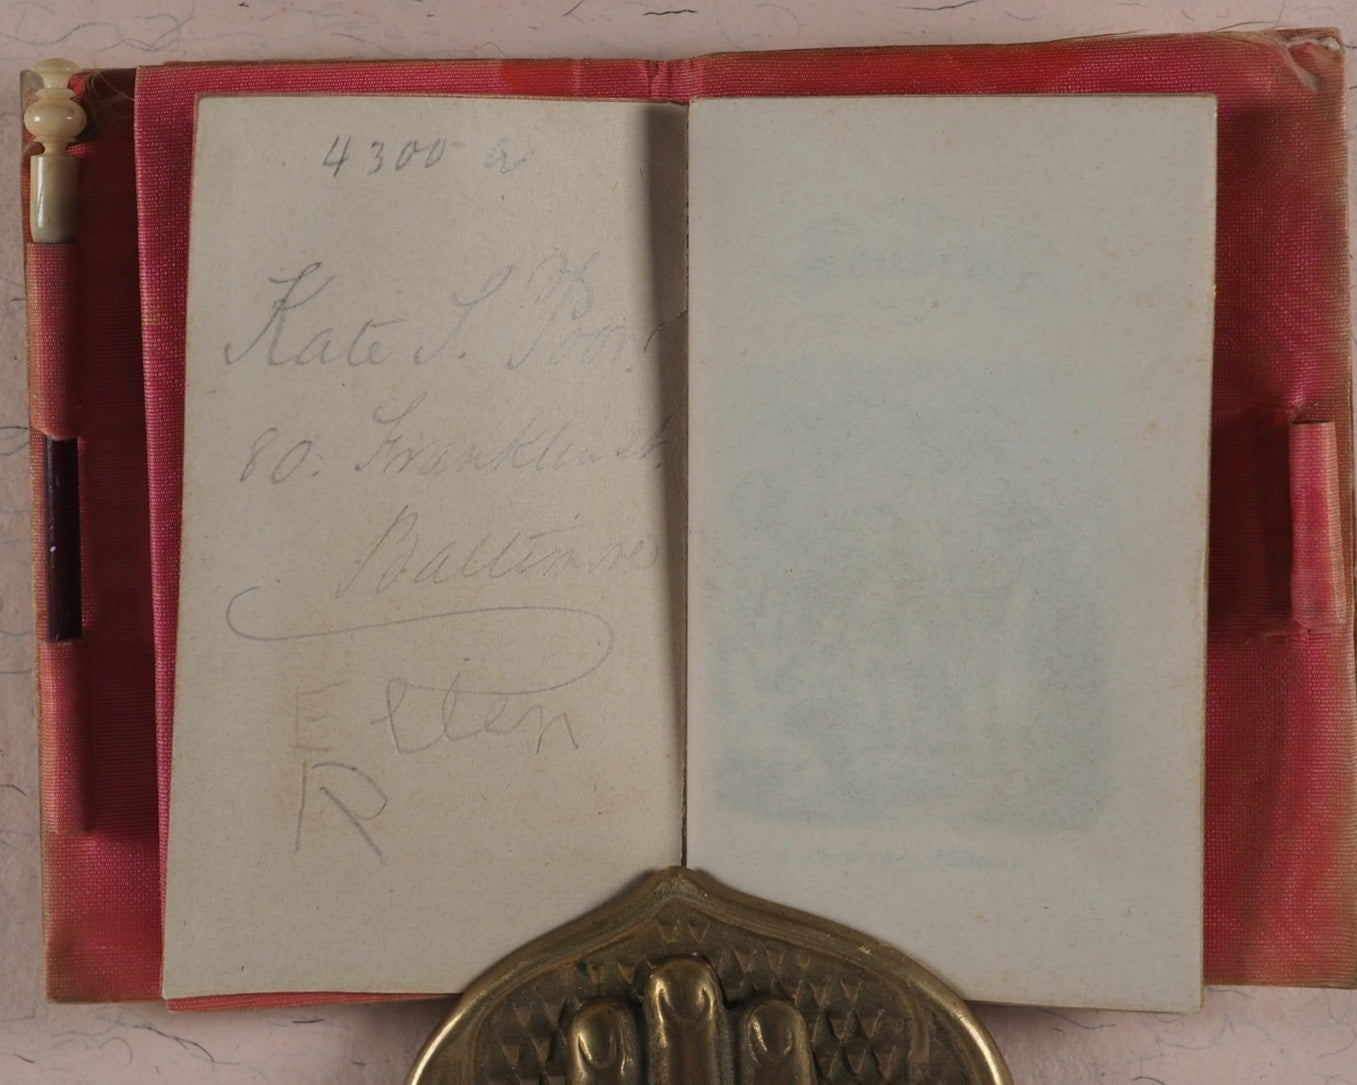 4300 a
Kate S. Poor.
80. Franklin st.
Baltimore
E Ellen
R